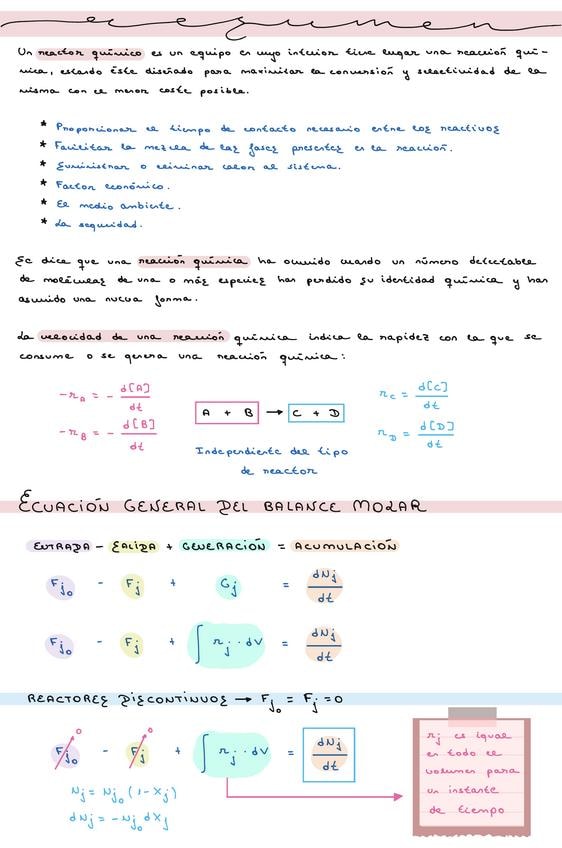 Resumen
Un reactor químico es un equipo en cuyo interior tiene lugar una reacción quí-
mica, estando éste diseñado para maximizar la conversión y selectividad de la
misma con el menor coste posible.
* Proporcionar el tiempo de contacto necesario entre los reactivos
* Facilitar la mezcla de las fases presentes en la reacción.
* Suministrar o eliminar calor al sistema.
* Factor económico.
* El medio ambiente.
* La seguridad.
Se dice que una reacción química ha ocurrido cuando un número detectable
de moléculas de una o más especies han perdido su identidad química y han
asumido una nueva forma.
La velocidad de una reacción química indica la rapidez con la que se
consume o se genera una reacción química:
-r_A = - d[A]/dt
-r_B = - d[B]/dt
A + B → C + D
Independiente del tipo
de reactor
r_C = d[C]/dt
r_D = d[D]/dt
ECUACIÓN GENERAL DEL BALANCE MOLAR
ENTRADA - SALIDA + GENERACIÓN = ACUMULACIÓN
F_j0 - F_j + G_j = dN_j/dt
F_j0 - F_j + ∫ r_j · dV = dN_j/dt
REACTORES DISCONTINUOS → F_j0 = F_j = 0
F_j0 0 - F_j 0 + ∫ r_j · dV = dN_j/dt
N_j = N_j0 (1 - X_j)
dN_j = -N_j0 dX_j
r_j es igual
en todo el
volumen para
un instante
de tiempo